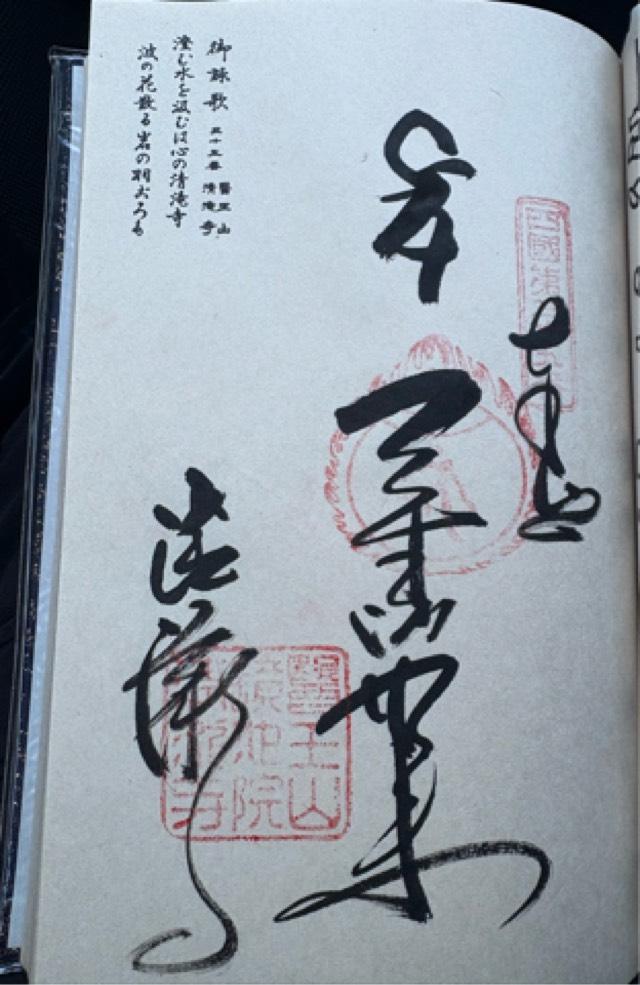 四國第三十五番
奉拝
薬師如来
清瀧寺
醫王山
鏡池院
清瀧寺
御詠歌 三十五番 醫王山 清滝寺
澄む水を汲むは心の清滝寺
波の花散る岩の羽ごろも